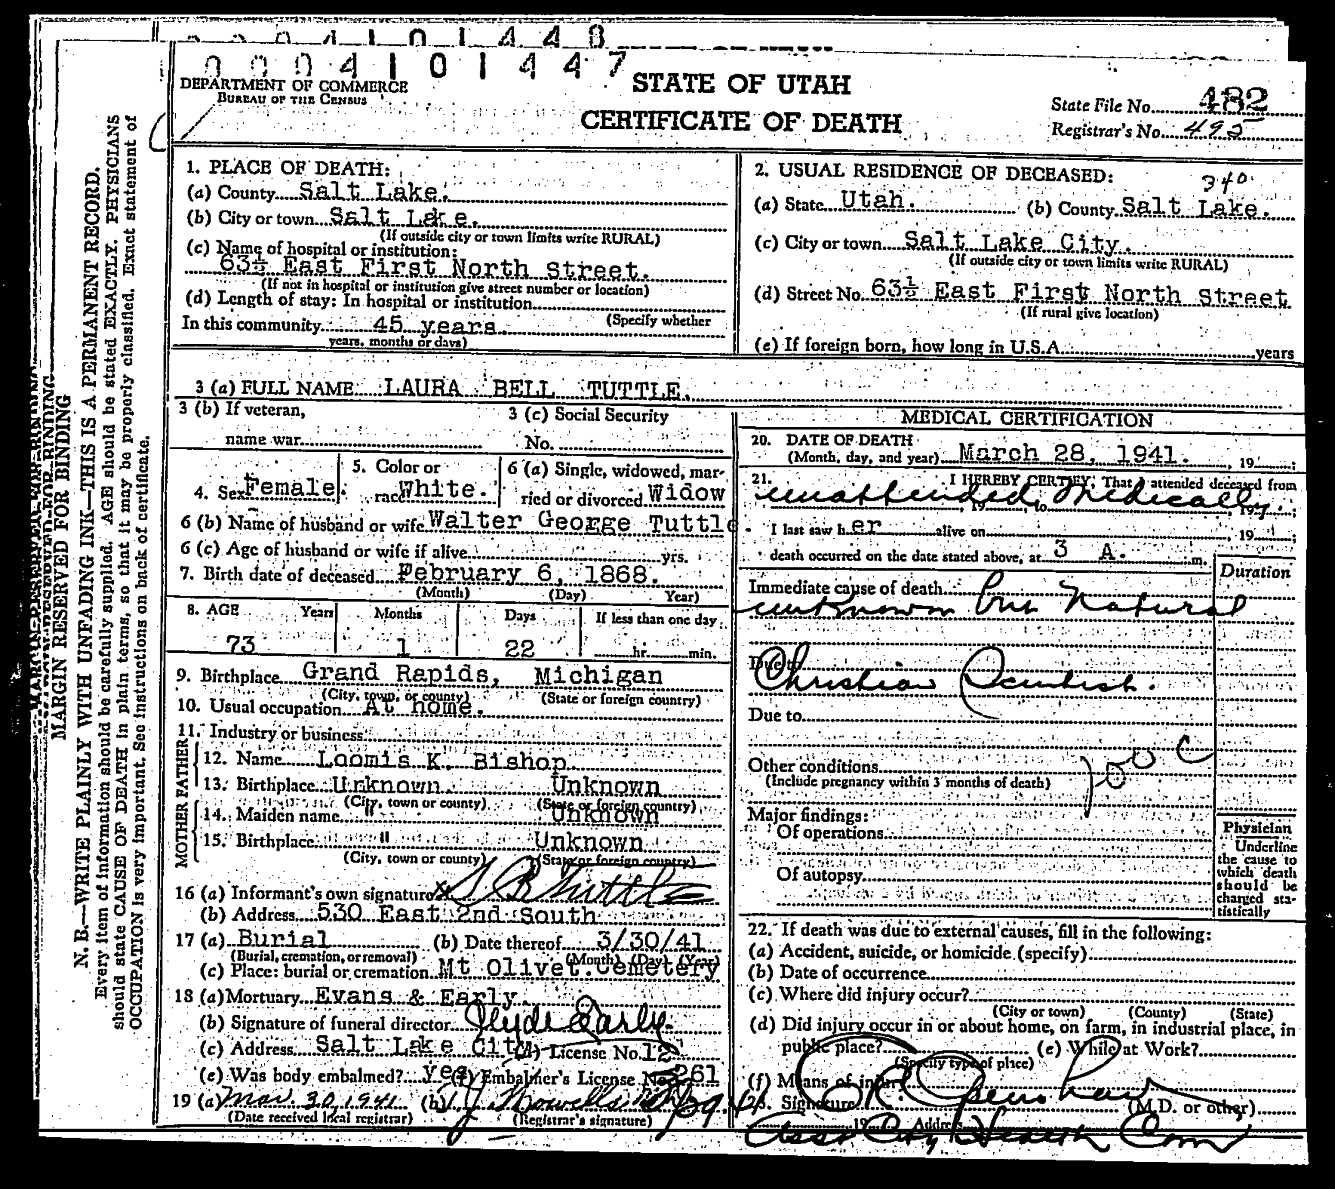 0004101448
0004101447
DEPARTMENT OF COMMERCE
BUREAU OF THE CENSUS
STATE OF UTAH
CERTIFICATE OF DEATH
State File No. 482
Registrar's No. 495
MARGIN RESERVED FOR BINDING
N. B.—WRITE PLAINLY WITH UNFADING INK—THIS IS A PERMANENT RECORD.
Every item of information should be carefully supplied. AGE should be stated EXACTLY. PHYSICIANS
should state CAUSE OF DEATH in plain terms, so that it may be properly classified. Exact statement of
OCCUPATION is very important. See instructions on back of certificate.
1. PLACE OF DEATH:
(a) County Salt Lake.
(b) City or town Salt Lake.
(If outside city or town limits write RURAL)
(c) Name of hospital or institution:
63½ East First North Street.
(If not in hospital or institution give street number or location)
(d) Length of stay: In hospital or institution
(Specify whether
In this community 45 years.
years, months or days)
2. USUAL RESIDENCE OF DECEASED:
340
(a) State Utah. (b) County Salt Lake.
(c) City or town Salt Lake City.
(If outside city or town limits write RURAL)
(d) Street No. 63½ East First North Street
(If rural give location)
(e) If foreign born, how long in U.S.A. years
3 (a) FULL NAME LAURA BELL TUTTLE.
3 (b) If veteran,
name war
3 (c) Social Security
No.
4. Sex Female.
5. Color or
race White.
6 (a) Single, widowed, mar-
ried or divorced Widow
6 (b) Name of husband or wife Walter George Tuttle.
6 (c) Age of husband or wife if alive yrs.
7. Birth date of deceased February 6, 1868.
(Month) (Day) Year)
8. AGE Years Months Days If less than one day
73 1 22 hr. min.
9. Birthplace Grand Rapids, Michigan
(City, town, or county) (State or foreign country)
10. Usual occupation At home.
11. Industry or business
FATHER
12. Name Loomis K. Bishop
13. Birthplace Unknown. Unknown
(City, town or county) (State or foreign country)
MOTHER
14. Maiden name " Unknown
15. Birthplace " Unknown
(City, town or county) (State or foreign country)
16 (a) Informant's own signature x Tuttle
(b) Address 530 East 2nd South
17 (a) Burial (b) Date thereof 3/30/41
(Burial, cremation, or removal) (Month) (Day) (Year)
(c) Place: burial or cremation Mt Olivet Cemetery
18 (a) Mortuary Evans & Early
(b) Signature of funeral director Clyde Early.
(c) Address Salt Lake City (d) License No. 12
(e) Was body embalmed? yes (f) Embalmer's License No. 261
19 (a) Mar. 30, 1941 (b)
(Date received local registrar) (Registrar's signature)
MEDICAL CERTIFICATION
20. DATE OF DEATH
(Month, day, and year) March 28, 1941. , 19 ;
21. I HEREBY CERTIFY, That I attended deceased from
unattended Medically
, 19 to , 19 ;
I last saw her alive on , 19 ;
death occurred on the date stated above, at 3 A. m.
Duration
Immediate cause of death
unknown but Natural
Due to
Christian Scientist.
Due to
Other conditions
(Include pregnancy within 3 months of death)
200 C
Major findings:
Of operations
Of autopsy
Physician
Underline
the cause to
which death
should be
charged sta-
tistically
22. If death was due to external causes, fill in the following:
(a) Accident, suicide, or homicide (specify)
(b) Date of occurrence
(c) Where did injury occur?
(City or town) (County) (State)
(d) Did injury occur in or about home, on farm, in industrial place, in
public place? (e) While at Work?
(Specify type of place)
(f) Means of injury
23. Signature (M.D. or other)
19 Address
Asst City Health Com